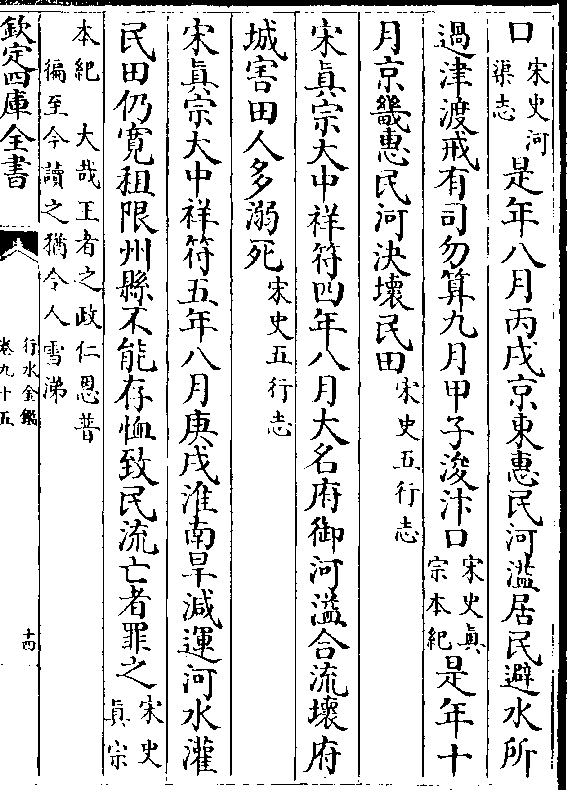 口宋史河渠志是年八月丙戌京東惠民河溢居民避水所
過津渡戒有司勿算九月甲子浚汴口宋史眞宗本紀是年十
月京畿惠民河決壞民田宋史五行志
宋眞宗大中祥符四年八月大名府御河溢合流壞府
城害田人多溺死宋史五行志
宋眞宗大中祥符五年八月庚戌淮南旱減運河水灌
民田仍寛租限州縣不能存恤致民流亡者罪之宋史眞宗
本紀 大哉王者之政仁恩普徧至今讀之猶令人雪涕
欽定四庫全書
行水金鑑
卷九十五
十四